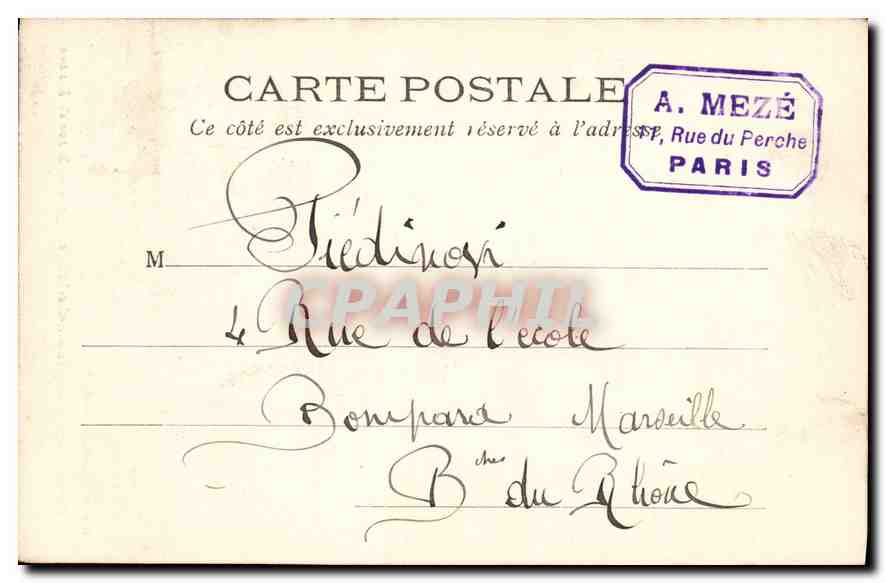 CARTE POSTALE
Ce côté est exclusivement réservé à l'adresse
A. MEZÉ
11, Rue du Perche
PARIS
M Piédinovi
CPAPHIL
4 Rue de l'école
Bompard Marseille
Bches du Rhône